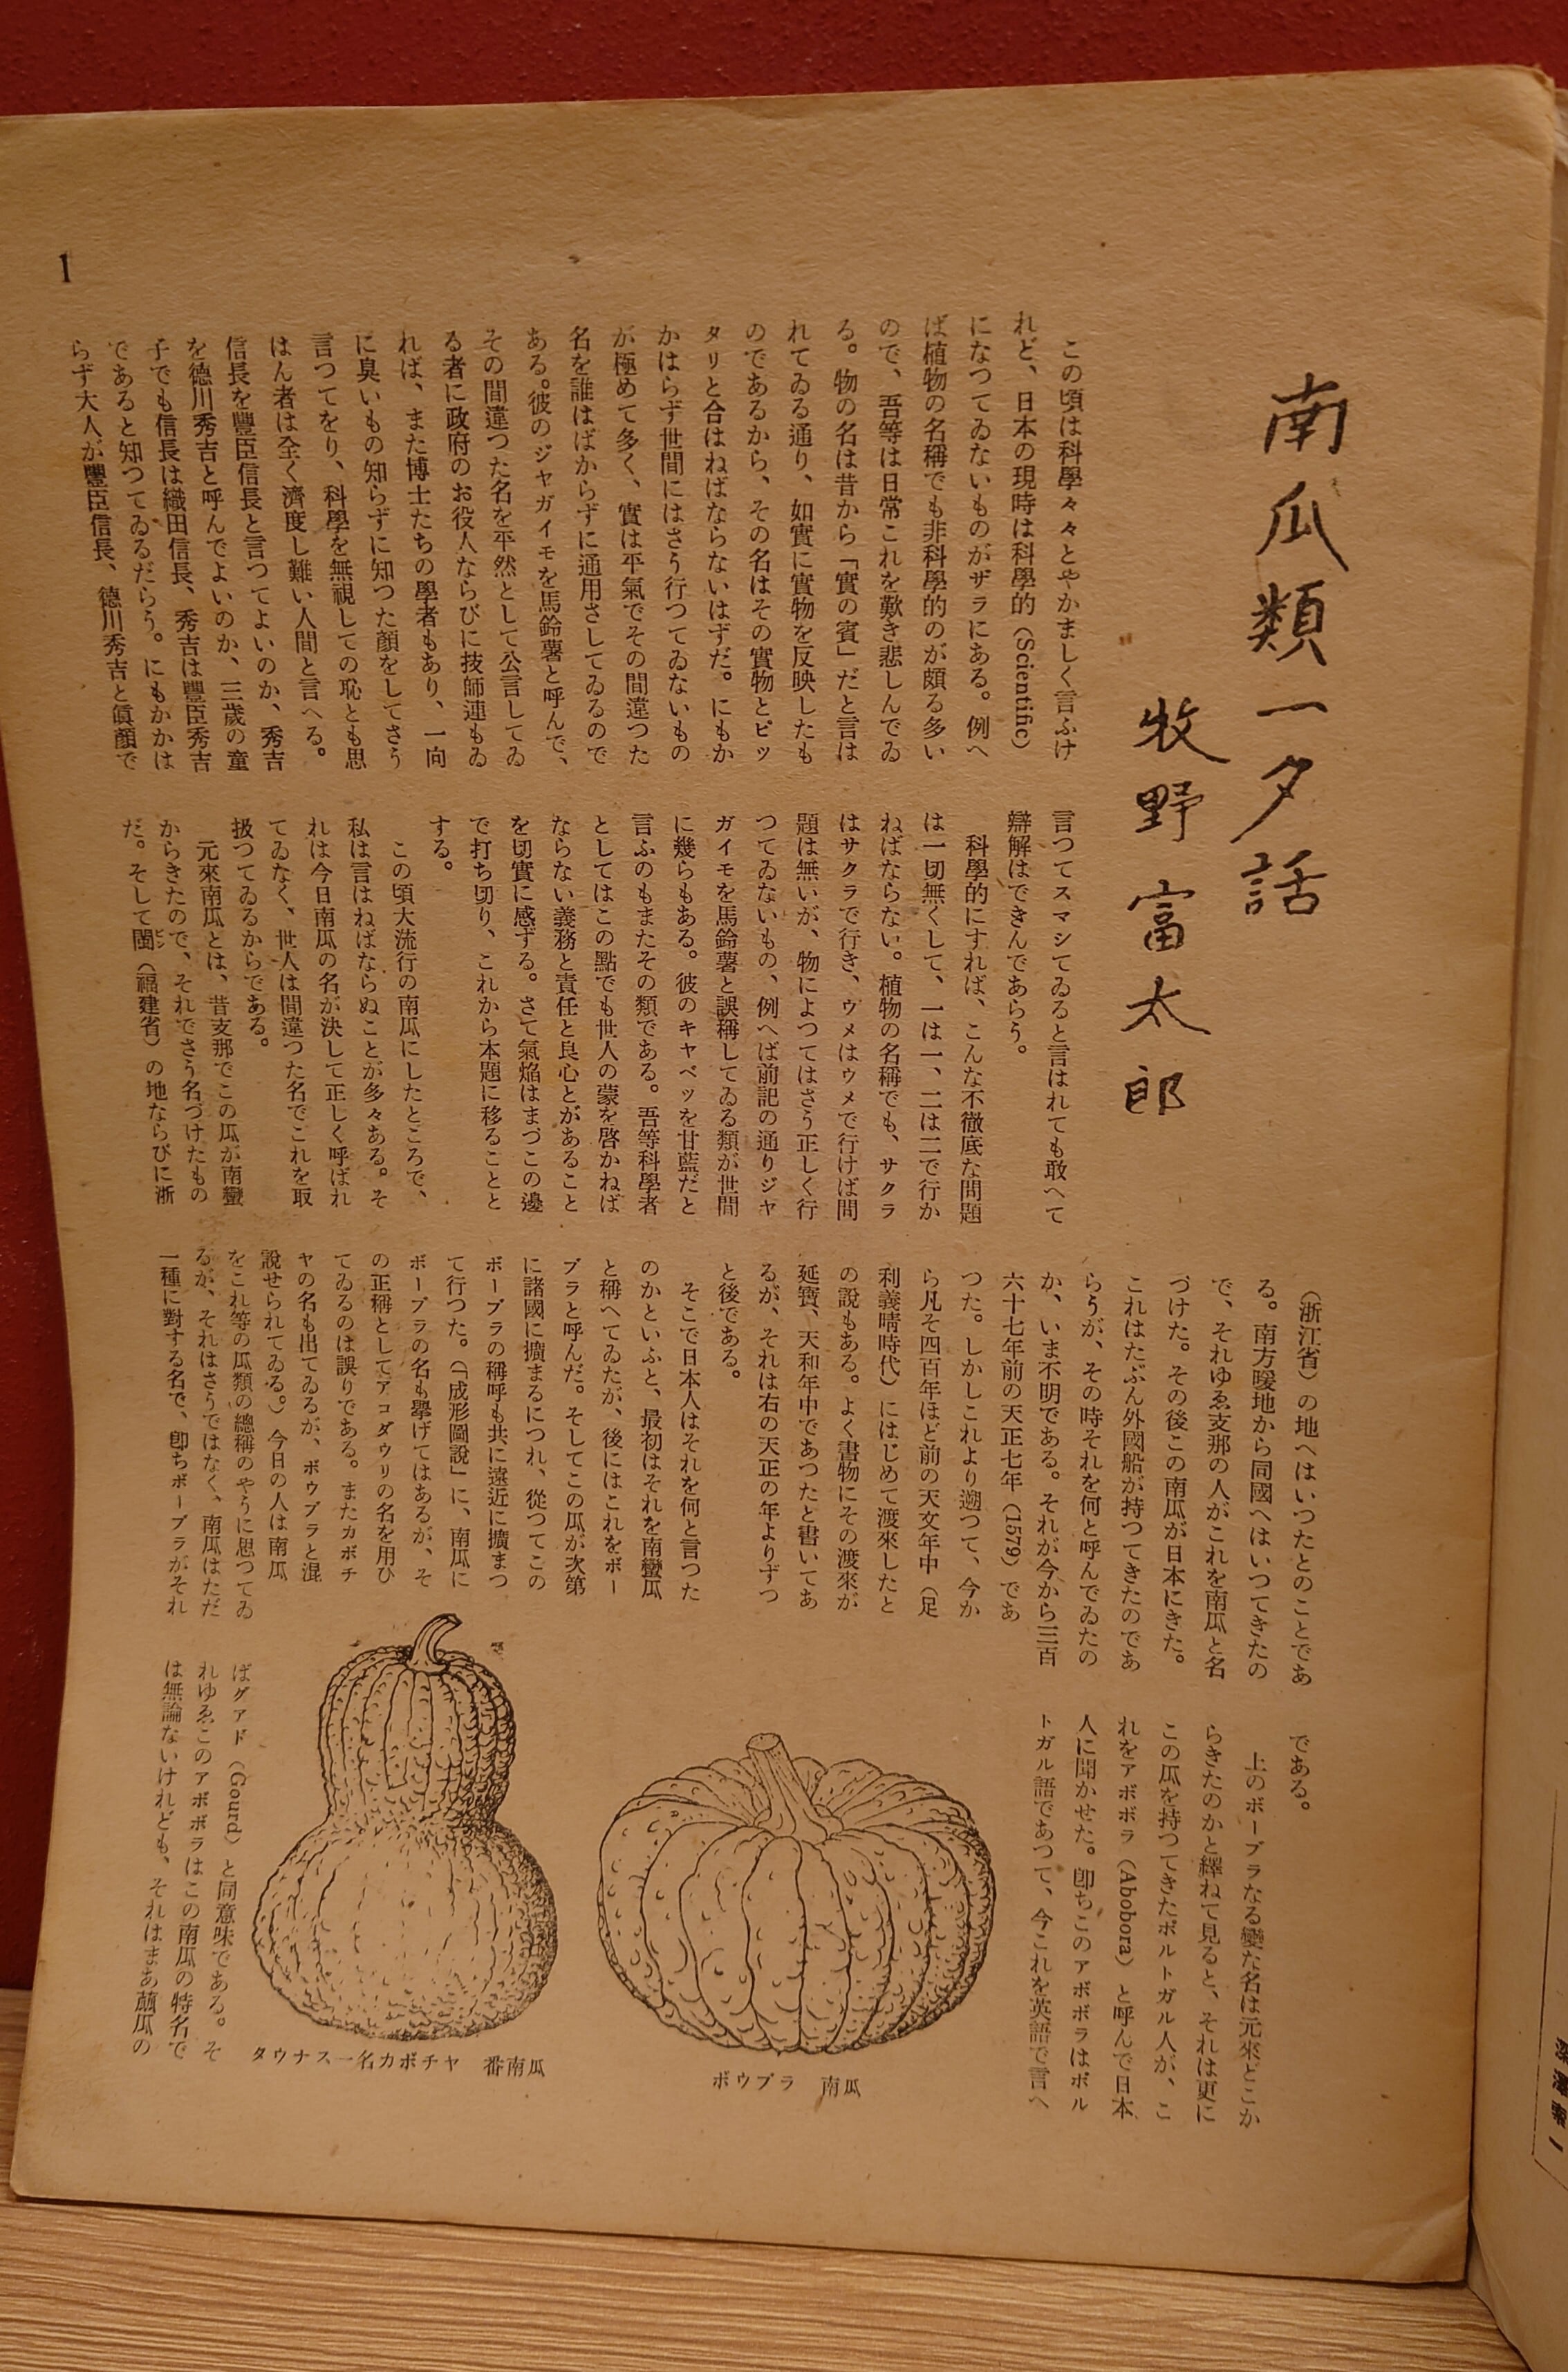 南瓜類一夕話
牧野富太郎
この頃は科學々々とやかましく言ふけ
れど、日本の現時は科學的（Scientific）
になつてゐないものがザラにある。例へ
ば植物の名稱でも非科學的のが頗る多い
ので、吾等は日常これを歎き悲しんでゐ
る。物の名は昔から「實の賓」だと言は
れてゐる通り、如實に實物を反映したも
のであるから、その名はその實物とピッ
タリと合はねばならないはずだ。にもか
かはらず世間にはさう行つてゐないもの
が極めて多く、實は平氣でその間違つた
名を誰はばからずに通用さしてゐるので
ある。彼のジャガイモを馬鈴薯と呼んで、
その間違つた名を平然として公言してゐ
る者に政府のお役人ならびに技師連もゐ
れば、また博士たちの學者もあり、一向
に臭いもの知らずに知つた顏をしてさう
言つてをり、科學を無視しての恥とも思
はん者は全く濟度し難い人間と言へる。
信長を豐臣信長と言つてよいのか、秀吉
を德川秀吉と呼んでよいのか、三歲の童
子でも信長は織田信長、秀吉は豐臣秀吉
であると知つてゐるだらう。にもかかは
らず大人が豐臣信長、德川秀吉と眞顏で
言つてスマシてゐると言はれても敢へて
辯解はできんであらう。
科學的にすれば、こんな不徹底な問題
は一切無くして、一は一、二は二で行か
ねばならない。植物の名稱でも、サクラ
はサクラで行き、ウメはウメで行けば問
題は無いが、物によつてはさう正しく行
つてゐないもの、例へば前記の通りジャ
ガイモを馬鈴薯と誤稱してゐる類が世間
に幾らもある。彼のキャベツを甘藍だと
言ふのもまたその類である。吾等科學者
としてはこの點でも世人の蒙を啓かねば
ならない義務と責任と良心とがあること
を切實に感ずる。さて氣焔はまづこの邊
で打ち切り、これから本題に移ることと
する。
この頃大流行の南瓜にしたところで、
私は言はねばならぬことが多々ある。そ
れは今日南瓜の名が決して正しく呼ばれ
てゐなく、世人は間違つた名でこれを取
扱つてゐるからである。
元來南瓜とは、昔支那でこの瓜が南蠻
からきたので、それでさう名づけたもの
だ。そして閩（福建省）の地ならびに浙
ビン
（浙江省）の地へはいつたとのことであ
る。南方暖地から同國へはいつてきたの
で、それゆゑ支那の人がこれを南瓜と名
づけた。その後この南瓜が日本にきた。
これはたぶん外國船が持つてきたのであ
らうが、その時それを何と呼んでゐたの
か、いま不明である。それが今から三百
六十七年前の天正七年（1579）であ
つた。しかしこれより遡つて、今か
ら凡そ四百年ほど前の天文年中（足
利義晴時代）にはじめて渡來したと
の說もある。よく書物にその渡來が
延寶、天和年中であつたと書いてあ
るが、それは右の天正の年よりずつ
と後である。
そこで日本人はそれを何と言つた
のかといふと、最初はそれを南蠻瓜
と稱へてゐたが、後にはこれをボー
ブラと呼んだ。そしてこの瓜が次第
に諸國に擴まるにつれ、從つてこの
ボーブラの稱呼も共に遠近に擴まつ
て行つた。（「成形圖說」に、南瓜に
ボーブラの名も擧げてはあるが、そ
の正稱としてアコダウリの名を用ひ
てゐるのは誤りである。またカボチ
ヤの名も出てゐるが、ボウブラと混
說せられてゐる。）今日の人は南瓜
をこれ等の瓜類の總稱のやうに思つてゐ
るが、それはさうではなく、南瓜はただ
一種に對する名で、卽ちボーブラがそれ
である。
上のボーブラなる變な名は元來どこか
らきたのかと繹ねて見ると、それは更に
この瓜を持つてきたポルトガル人が、こ
れをアボボラ（Abobora）と呼んで日本
人に聞かせた。卽ちこのアボボラはポル
トガル語であつて、今これを英語で言へ
ばグァド（Gourd）と同意味である。そ
れゆゑこのアボボラはこの南瓜の特名で
は無論ないけれども、それはまあ蔬瓜の
ボウブラ　南瓜
タウナス一名カボチヤ　番南瓜
1